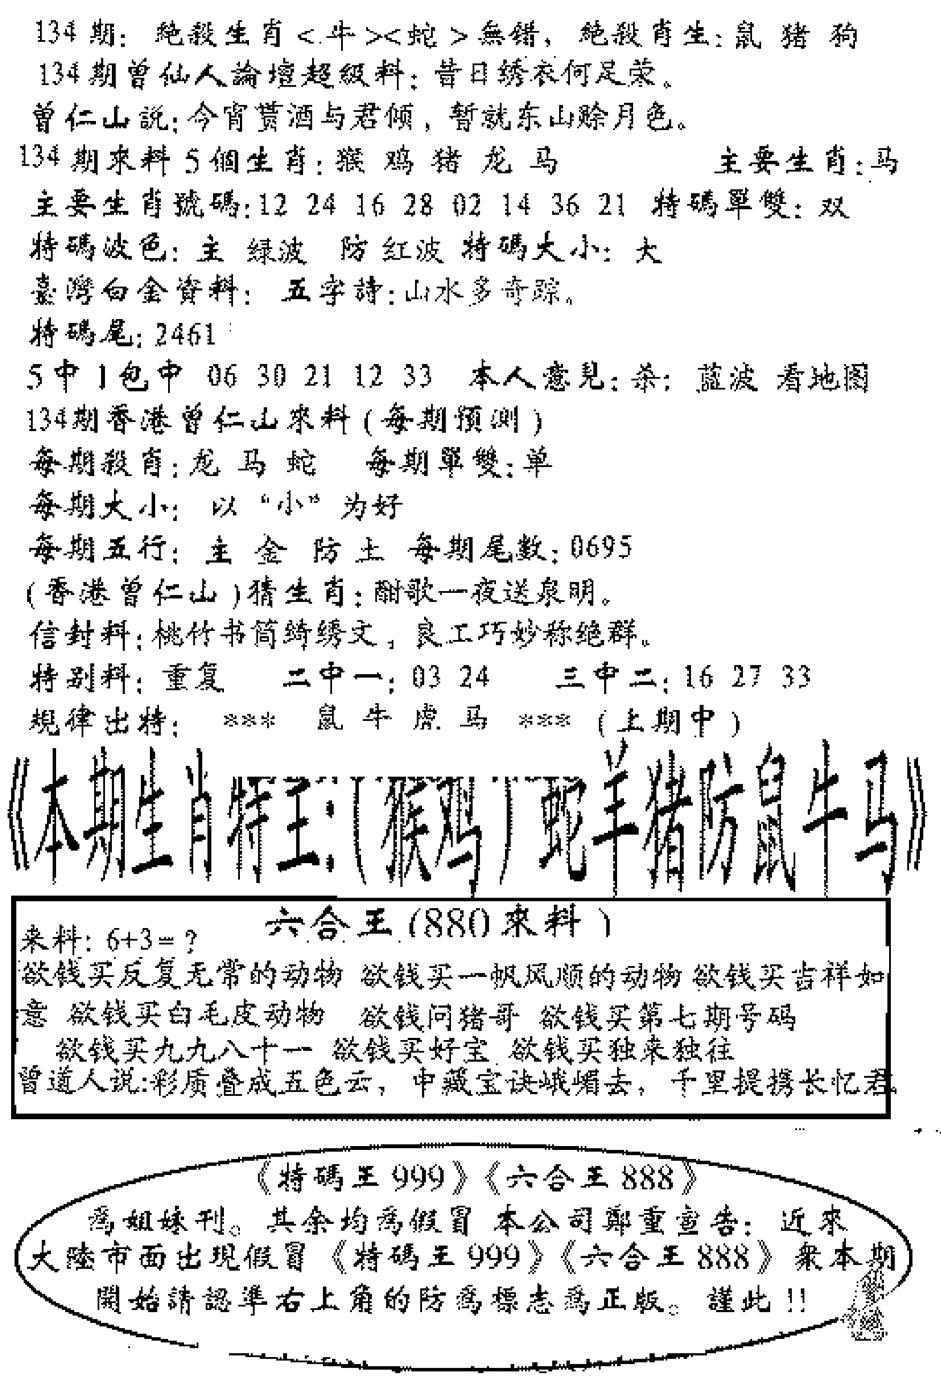 134期: 絶殺生肖<牛><蛇>無错, 絶殺肖生:鼠 猪 狗
134期曾仙人論壇超級料:昔日绣衣何足荣。
曾仁山説:今宵贳酒与君倾，暫就东山赊月色。
134期來料5個生肖:猴 鸡 猪 龙 马 主要生肖:马
主要生肖號碼:12 24 16 28 02 14 36 21 特碼單雙:双
特碼波色:主 绿波 防红波 特碼大小:大
臺灣白金資料: 五字詩:山水多奇踪。
特碼尾:2461
5中1包中 06 30 21 12 33 本人意見:杀:蓝波 看地图
134期香港曾仁山來料(每期預測)
每期殺肖:龙 马 蛇 每期單雙:单
每期大小: 以“小”为好
每期五行:主 金 防 土 每期尾数:0695
(香港曾仁山)猜生肖:酣歌一夜送泉明。
信封料:桃竹书筒绮绣文，良工巧妙称绝群。
特别料:重复 二中一:03 24 三中二:16 27 33
規律出特: *** 鼠 牛 虎 马 ***(上期中)
《本期生肖特王:(猴鸡)蛇羊猪防鼠牛马》
六合王(880來料)
来料: 6+3=?
欲钱买反复无常的动物 欲钱买一帆风顺的动物 欲钱买吉祥如
意 欲钱买白毛皮动物 欲钱问猪哥 欲钱买第七期号码
欲钱买九九八十一 欲钱买好宝 欲钱买独来独往
曾道人说:彩质叠成五色云，中藏宝诀峨嵋去，千里提携长忆君。
《特碼王999》《六合王888》
爲姐妹刊。其余均爲假冒 本公司鄭重宣告: 近來
大陸市面出現假冒《特碼王999》《六合王888》衆本期
開始請認準右上角的防爲標志爲正版。謹此!!